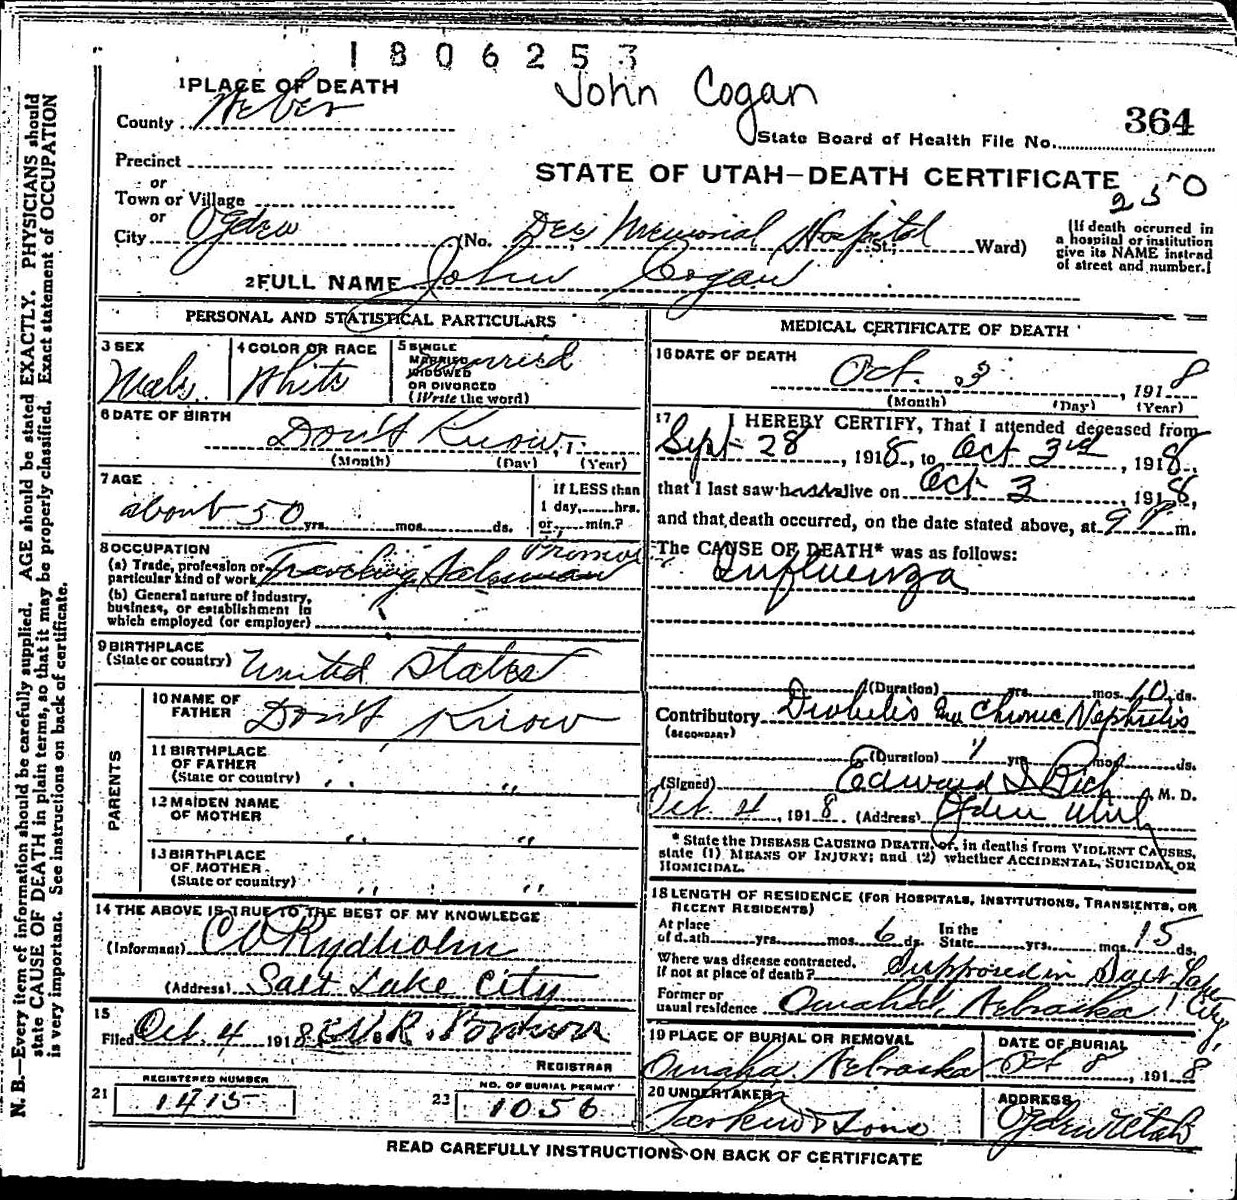 1806253
John Cogan
1 PLACE OF DEATH
County Weber
State Board of Health File No. 364
Precinct
or
Town or Village
or
City Ogden
STATE OF UTAH—DEATH CERTIFICATE
2550
(No. Dee Memorial Hospital St.; Ward)
(If death ocurred in a hospital or institution give its NAME instead of street and number.)
2 FULL NAME John Cogan
PERSONAL AND STATISTICAL PARTICULARS
3 SEX
Male
4 COLOR OR RACE
White
5 SINGLE
MARRIED
WIDOWED
OR DIVORCED
(Write the word)
Married
6 DATE OF BIRTH
Don't Know, 1
(Month) (Day) (Year)
7 AGE
about 50 yrs. mos. ds.
If LESS than
1 day, hrs.
or min.?
8 OCCUPATION
(a) Trade, profession or
particular kind of work Traveling Salesman
(b) General nature of industry,
business, or establishment in
which employed (or employer)
9 BIRTHPLACE
(State or country) United States
PARENTS
10 NAME OF
FATHER Don't Know
11 BIRTHPLACE
OF FATHER
(State or country) " "
12 MAIDEN NAME
OF MOTHER " "
13 BIRTHPLACE
OF MOTHER
(State or country) " "
14 THE ABOVE IS TRUE TO THE BEST OF MY KNOWLEDGE
(Informant) C V Rydholm
(Address) Salt Lake City
15
Filed Oct. 4 1918
REGISTRAR
21 REGISTERED NUMBER
1415
22 NO. OF BURIAL PERMIT
1056
MEDICAL CERTIFICATE OF DEATH
16 DATE OF DEATH
Oct. 3, 1918
(Month) (Day) (Year)
17 I HEREBY CERTIFY, That I attended deceased from
Sept 28, 1918, to Oct 3rd, 1918,
that I last saw h alive on Oct 3, 1918,
and that death occurred, on the date stated above, at 9 P m.
The CAUSE OF DEATH* was as follows:
Influenza
(Duration) yrs. mos. 10 ds.
Contributory Diabetis and Chronic Nephritis
(SECONDARY)
(Duration) 1 yrs. mos. ds.
(Signed) Edward I. Rich, M. D.
Oct. 4, 1918 (Address) Ogden Utah
* State the DISEASE CAUSING DEATH, or, in deaths from VIOLENT CAUSES,
state (1) MEANS OF INJURY; and (2) whether ACCIDENTAL, SUICIDAL OR
HOMICIDAL.
18 LENGTH OF RESIDENCE (FOR HOSPITALS, INSTITUTIONS, TRANSIENTS, OR
RECENT RESIDENTS)
At place
of death yrs. mos. 6 ds. In the
State yrs. mos. 15 ds.
Where was disease contracted.
if not at place of death? Supposed in Salt Lake City
Former or
usual residence Omaha, Nebraska
19 PLACE OF BURIAL OR REMOVAL
Omaha Nebraska
DATE OF BURIAL
Oct 8, 1918
20 UNDERTAKER
Larkin & Sons
ADDRESS
Ogden Utah
READ CAREFULLY INSTRUCTIONS ON BACK OF CERTIFICATE
N. B.—Every item of information should be carefully supplied. AGE should be stated EXACTLY. PHYSICIANS should
state CAUSE OF DEATH in plain terms, so that it may be properly classified. Exact statement of OCCUPATION
is very important. See instructions on back of certificate.